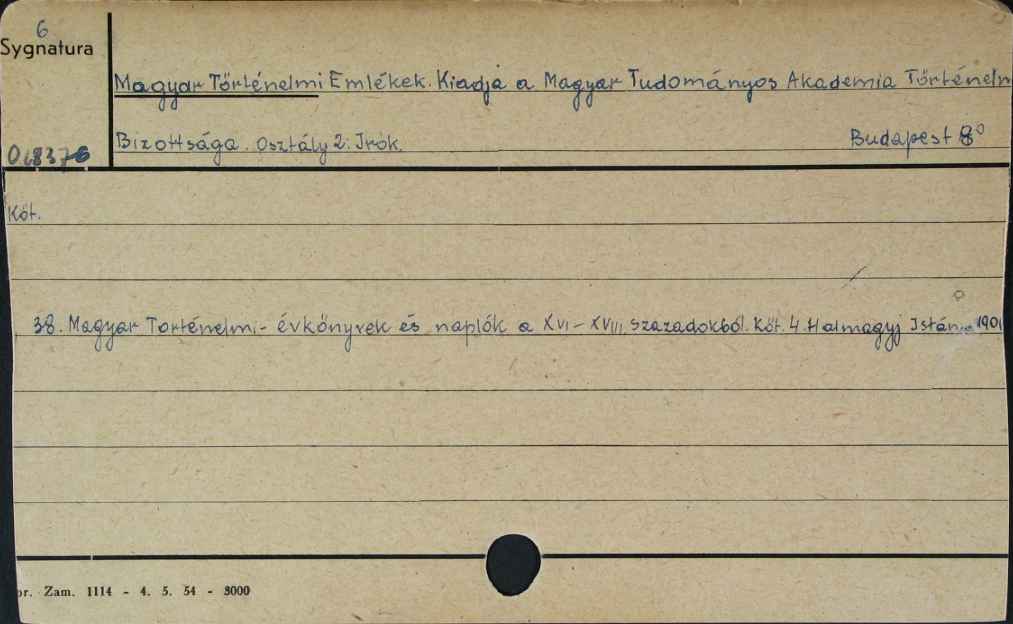 6
Sygnatura
Magyar Történelmi Emlékek. Kiadja a Magyar Tudományos Akademia Történelm
Bizottsága. Osztály 2: Irók. Budapest 8°
Köt.
38. Magyar Torténelmi- évkönyvek és naplók a XVI-XVIII szazadokból. Köt. 4 Halmagyi István 1901
Zam. 1114 - 4. 5. 54 - 3000